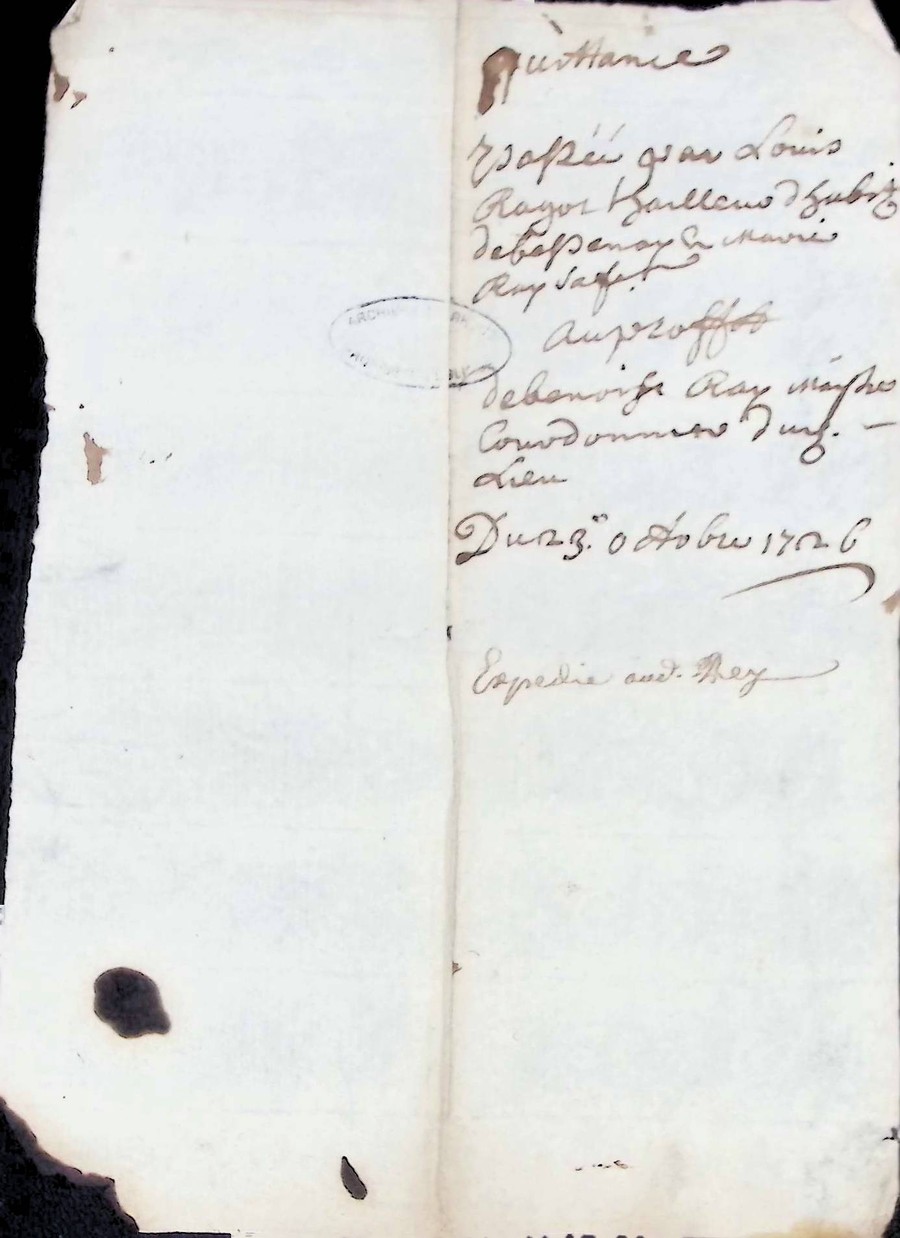 Quittance
passéé par Louis
Ragot thailleur d'habitz
de bessenay Et Marie
Ray sa fe
Au proffit
de benoist Ray Maistre
Courdonnier dud.
Lieu
Du 23e octobre 1726
Expedie aud. Rey
ARCHIVES